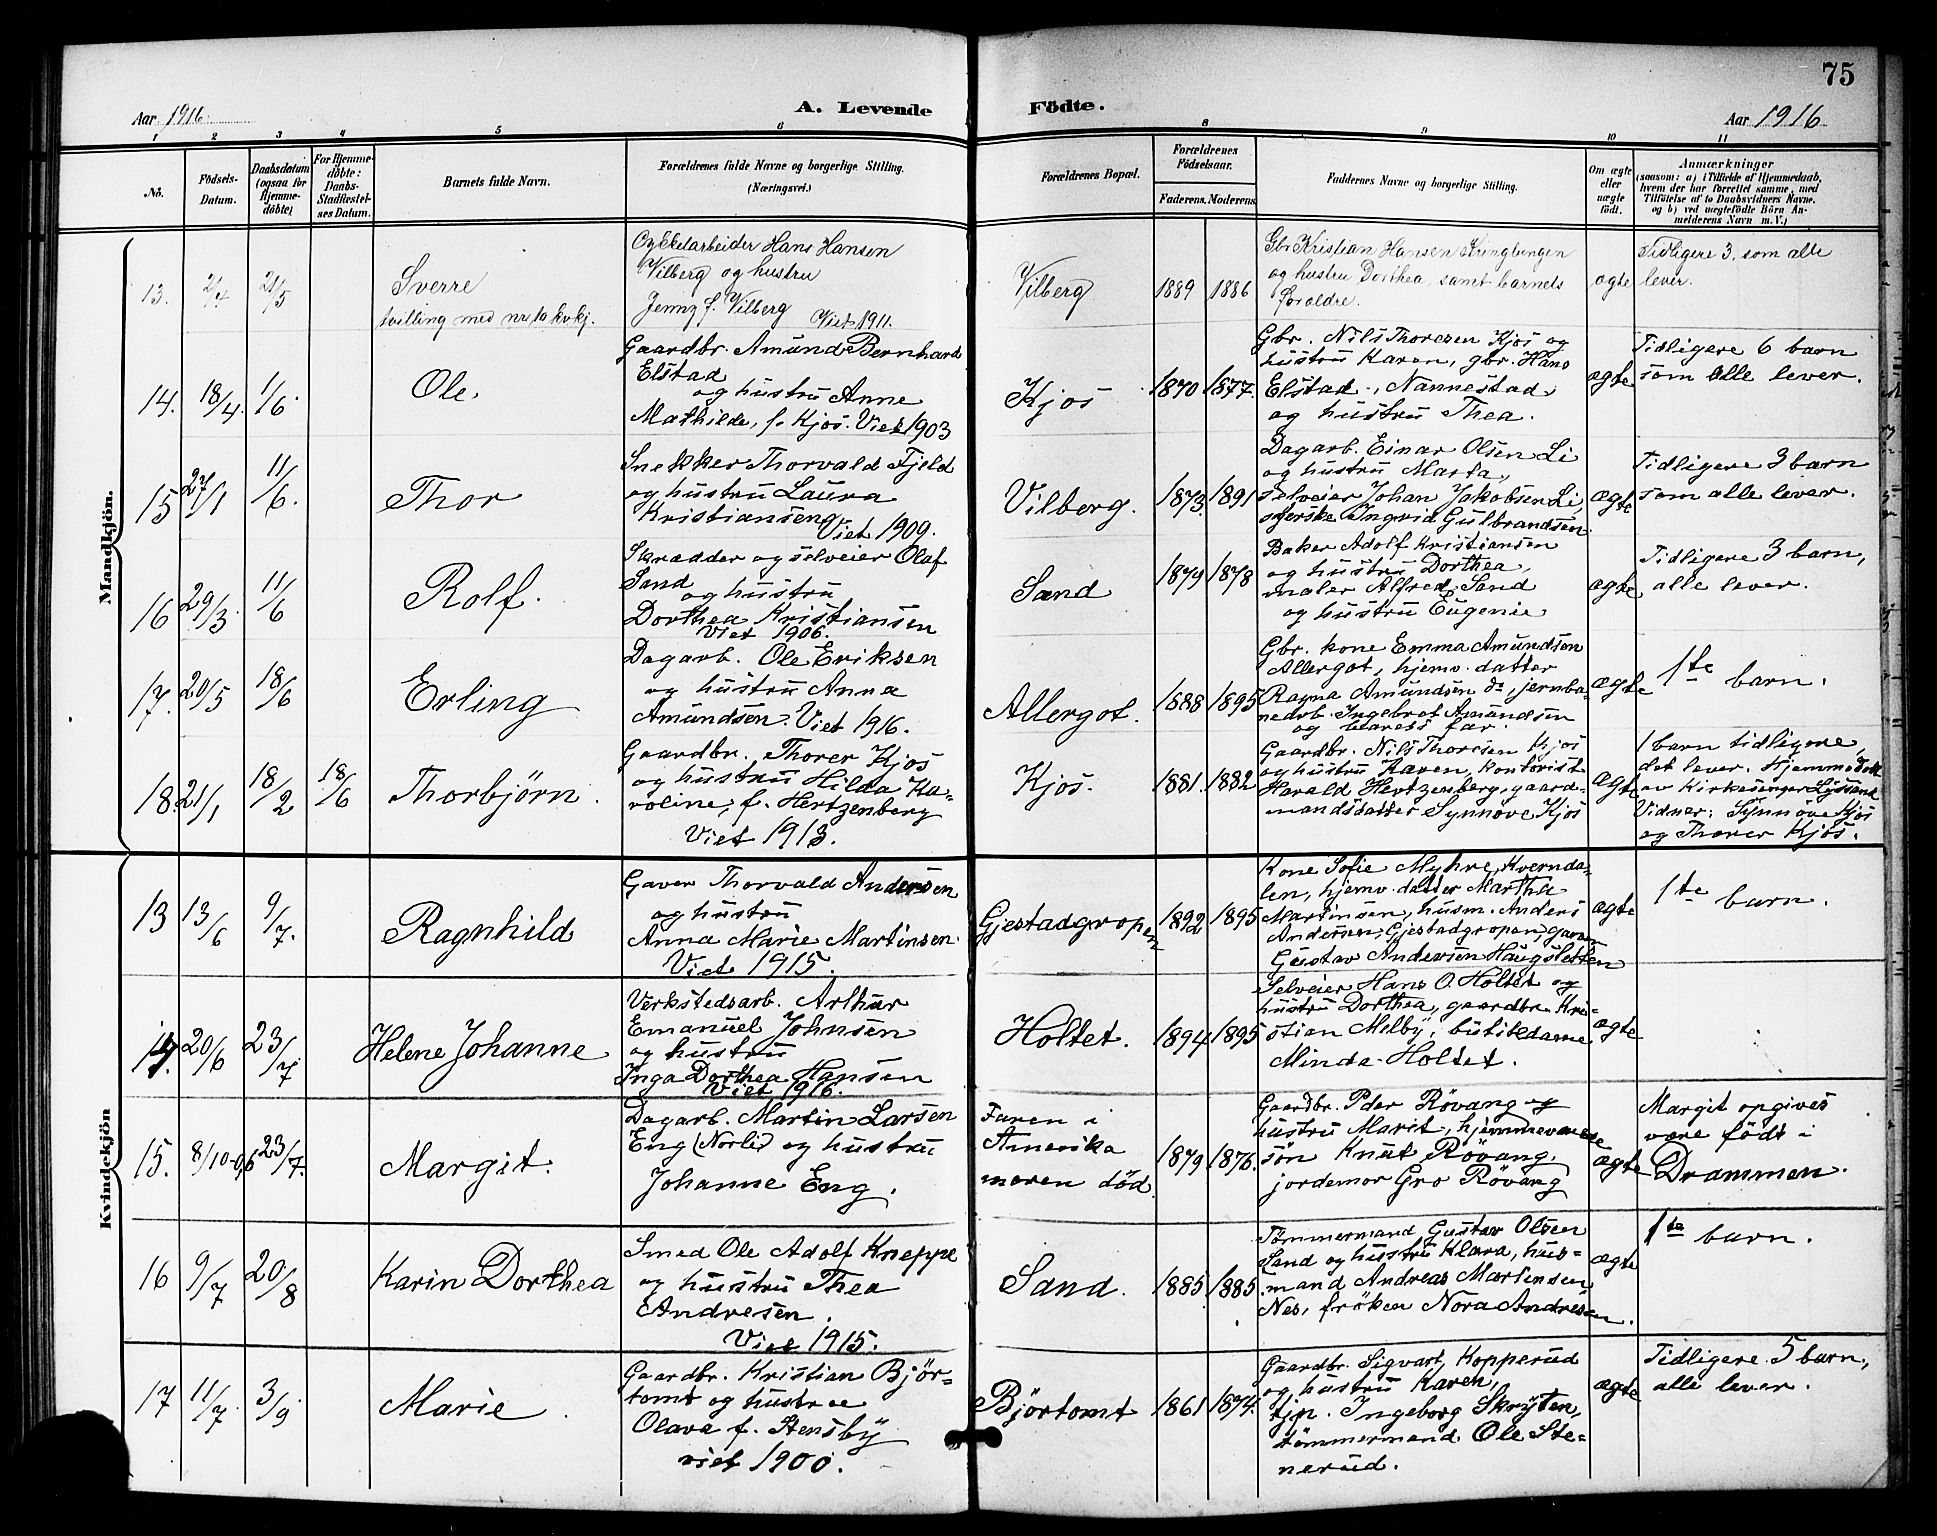 75
Aar 1916
A. Levende
Födte.
Aar 1916
1
2
3
4
5
6
8
9
10
11
No.
Födsels-
Datum.
Daabsdatum
(ogsaa for
Hjemme-
döbte)
For Hjemme-
döbte:
Daabs-
Stadfæstel-
ses Datum.
Barnets fulde Navn.
Forældrenes fulde Navne og borgerlige Stilling.
(Næringsvei.)
Forældrenes Bopæl.
Forældrenes
Födselsaar.
Faderens.
Moderens.
Faddernes Navne og borgerlige Stilling.
Om ægte
eller
uægte
födt.
Anmærkninger
(saasom: a) i Tilfælde af Hjemmedaab,
hvem der har forrettet samme, med
Tilföielse af to Daabsvidners Navne,
og b) ved uægtefödte Börn An-
melderens Navn m. V.)
Mandkjön.
13.
2/4
21/5
Sverre
tvilling med nr. 10 kvkj.
Cykkelarbeider Hans Hansen
Vilberg og hustru
Jenny f. Vilberg
Viet 1911.
Vilberg
1889
1886
Gbr Kristian Hansen Kringlungen
og hustru Dorthea, samt barnets
foraldre.
ægte
Tidligere 3, som alle
lever.
14.
18/4.
1/6.
Ole.
Gaardbr. Amund Bernhard
Elstad
og hustru Anne
Mathilde, f. Kjos. Viet 1903
Kjos
1870
1877.
Gbr. Nils Thoresen Kjos og
hustru Karen, gbr. Hans
Elstad, Nannestad
og hustru Thea.
ægte
Tidligere 6 barn
som alle lever.
15
27/1
11/6.
Thor
Snekker Thorvald Fjeld
og hustru Laura
Kristiansen
Viet 1909.
Vilberg.
1873.
1891
Dagarb. Einar Olsen Li
og hustru Marta,
selveier Johan Jakobsen Li,
syerske Ingrid Gulbrandsen.
ægte
Tidligere 3 barn
som alle lever.
16
29/3.
11/6
Rolf.
Skrædder og selveier Olaf
Sand
og hustru
Dorthea Kristiansen
Viet 1906.
Sand
1874
1878
Baker Adolf Kristiansen
og hustru Dorthea,
maler Alfred Sand
og hustru Eugenie
ægte
Tidligere 3 barn,
alle lever.
17.
20/5
18/6
Erling
Dagarb. Ole Eriksen
og hustru Anna
Amundsen. Viet 1916.
Allergot.
1888
1895
Gbr. kone Emma Amundsen
Allergot, hjemv. datter
Ragna Amundsen ds, jernba-
nearb. Ingebret Amundsen
og barnets far.
ægte
1ste barn.
18.
21/1
18/2
18/6
Thorbjörn.
Gaardbr. Thorer Kjos
og hustru Hilda Ka-
roline, f. Hertzenberg
Viet 1913.
Kjos.
1881.
1882
Gaardbr. Nils Thoresen Kjos
og hustru Karen, kontorist
Harald Hertzenberg, gaard-
mandsdatter Synnöve Kjos
ægte
1 barn tidligere,
det lever. Hjemmedöbt
av Kirkesanger Lyssand
Vidner: Synnöve Kjos
og Thorer Kjos.
Kvindekjön
13
13/6
9/7.
Ragnhild
Gaver Thorvald Andersen
og hustru
Anna Marie Martinsen.
Viet 1915.
Gjestadgropen
1892
1895
Kone Sofie Myhre, Kvernda-
len, hjemv. datter Marthe
Martinsen, husm. Anders
Andersen, Gjestadgropen, garver
Gustav Andersen Haugsletten
ægte
1ste barn.
14.
20/6
23/7
Helene Johanne
Verkstedsarb. Arthur
Emanuel Johnsen
og hustru
Inga Dorthea Hansen
Viet 1916.
Holtet.
1894
1895
Selveier Hans O. Holtet og
hustru Dorthea, gaardbr. Kri-
stian Melby, butikdame
Minda Holtet.
ægte
15.
8/10-06
23/7.
Margit.
Dagarb. Martin Larsen
Eng (Norli) og hustru
Johanne Eng.
Faren i
Amerika
moren död
1879
1876.
Gaardbr. Peder Rövang og
hustru Marit, hjemmeværende
sön Knut Rövang,
jordemor Gro Rövang
ægte
Margit opgives
være födt i
Drammen.
16
9/7
20/8
Karin Dorthea
Smed Ole Adolf Kneppe
og hustru Thea
Andresen.
Viet 1915.
Sand.
1885
1885
Tömmermand Gustav Olsen
Sand og hustru Klara, hus-
mand Andreas Martinsen
Nes, fröken Nora Andresen.
ægte
1ste barn.
17
11/7
3/9
Marie
Gaardbr. Kristian Björ-
tomt og hustru
Olava f. Stensby
viet 1900.
Björtomt
1861
1874.
Gaardbr. Sigvart Kopperud
og hustru Karen,
tjp. Ingeborg Skryten,
tömmermand Ole Ste-
nerud.
ægte
Tidligere 5 barn,
alle lever.